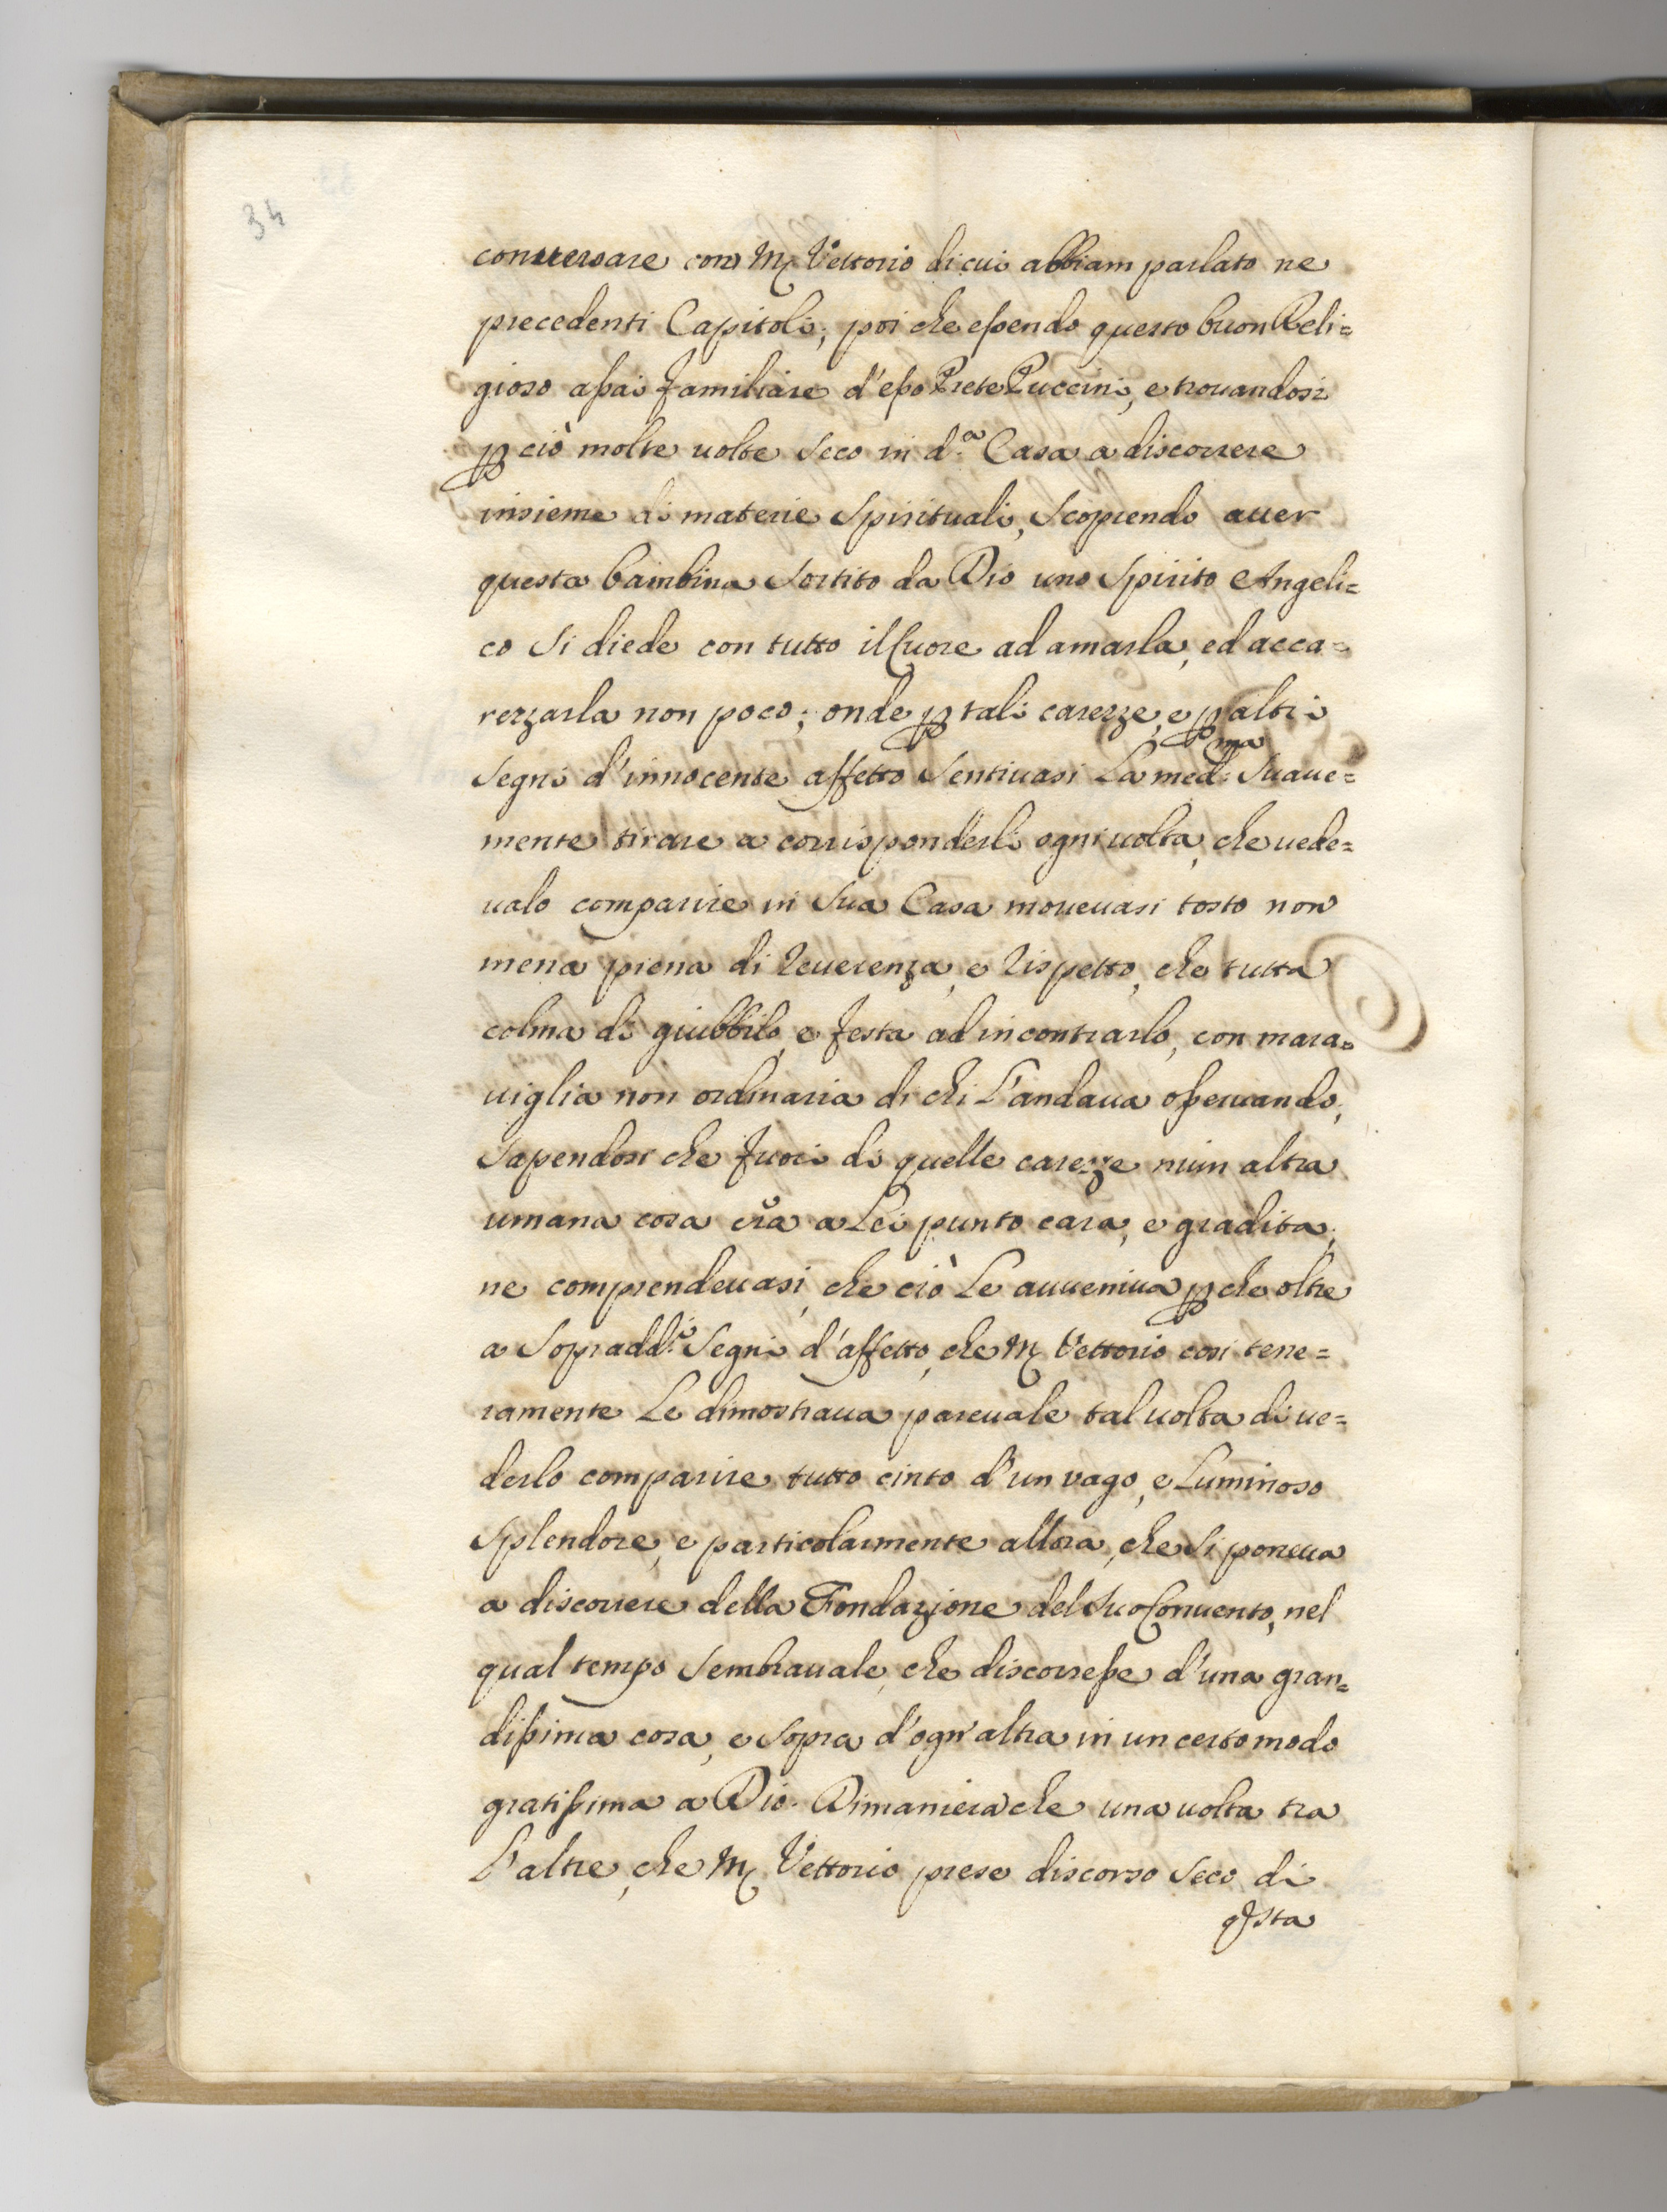 34
conversare con M. Vettorio di cui abbiam parlato ne
precedenti Capitoli; poi che essendo questo buon Reli=
gioso assai familiare d'esso Prete Puccini, e trouandosi
p ciò molte uolte seco in d.a Casa a discorrere
insieme di materie spirituali, scoprendo auer
questa bambina sortito da Dio uno spirito Angeli=
co si diede con tutto il Cuore ad amarla, ed acca=
rezzarla non poco; onde p tali carezze, e p altri
segni d'innocente affetto sentiuasi la med.ma suaue=
mente tirare a corrisponderli ogni uolta, che uede=
ualo comparire in sua Casa moueuasi tosto non
mena piena di reuerenza, e rispetto, che tutta
colma di giubbilo, e festa ad incontrarlo, con mara=
uiglia non ordinaria di chi l'andaua osseruando;
sapendosi che fuori di quelle carezze niun altra
umana cosa era a Lei punto cara, e gradita;
ne comprendeuasi, che ciò le auueniua p che oltre
a sopradd.i segni d'affetto, che M. Vettorio così tene=
ramente le dimostraua pareuale tal uolta di ue=
derlo comparire tutto cinto d'un vago, e luminoso
splendore, e particolarmente allora, che si poneua
a discorrere della Fondazione del suo Conuento, nel
qual tempo sembrauale, che discorresse d'una gran=
dissima cosa, e sopra d'ogn'altra in un certo modo
gratissima a Dio. Dimaniera che una uolta tra
l'altre, che M. Vettorio prese discorso seco di
qsta